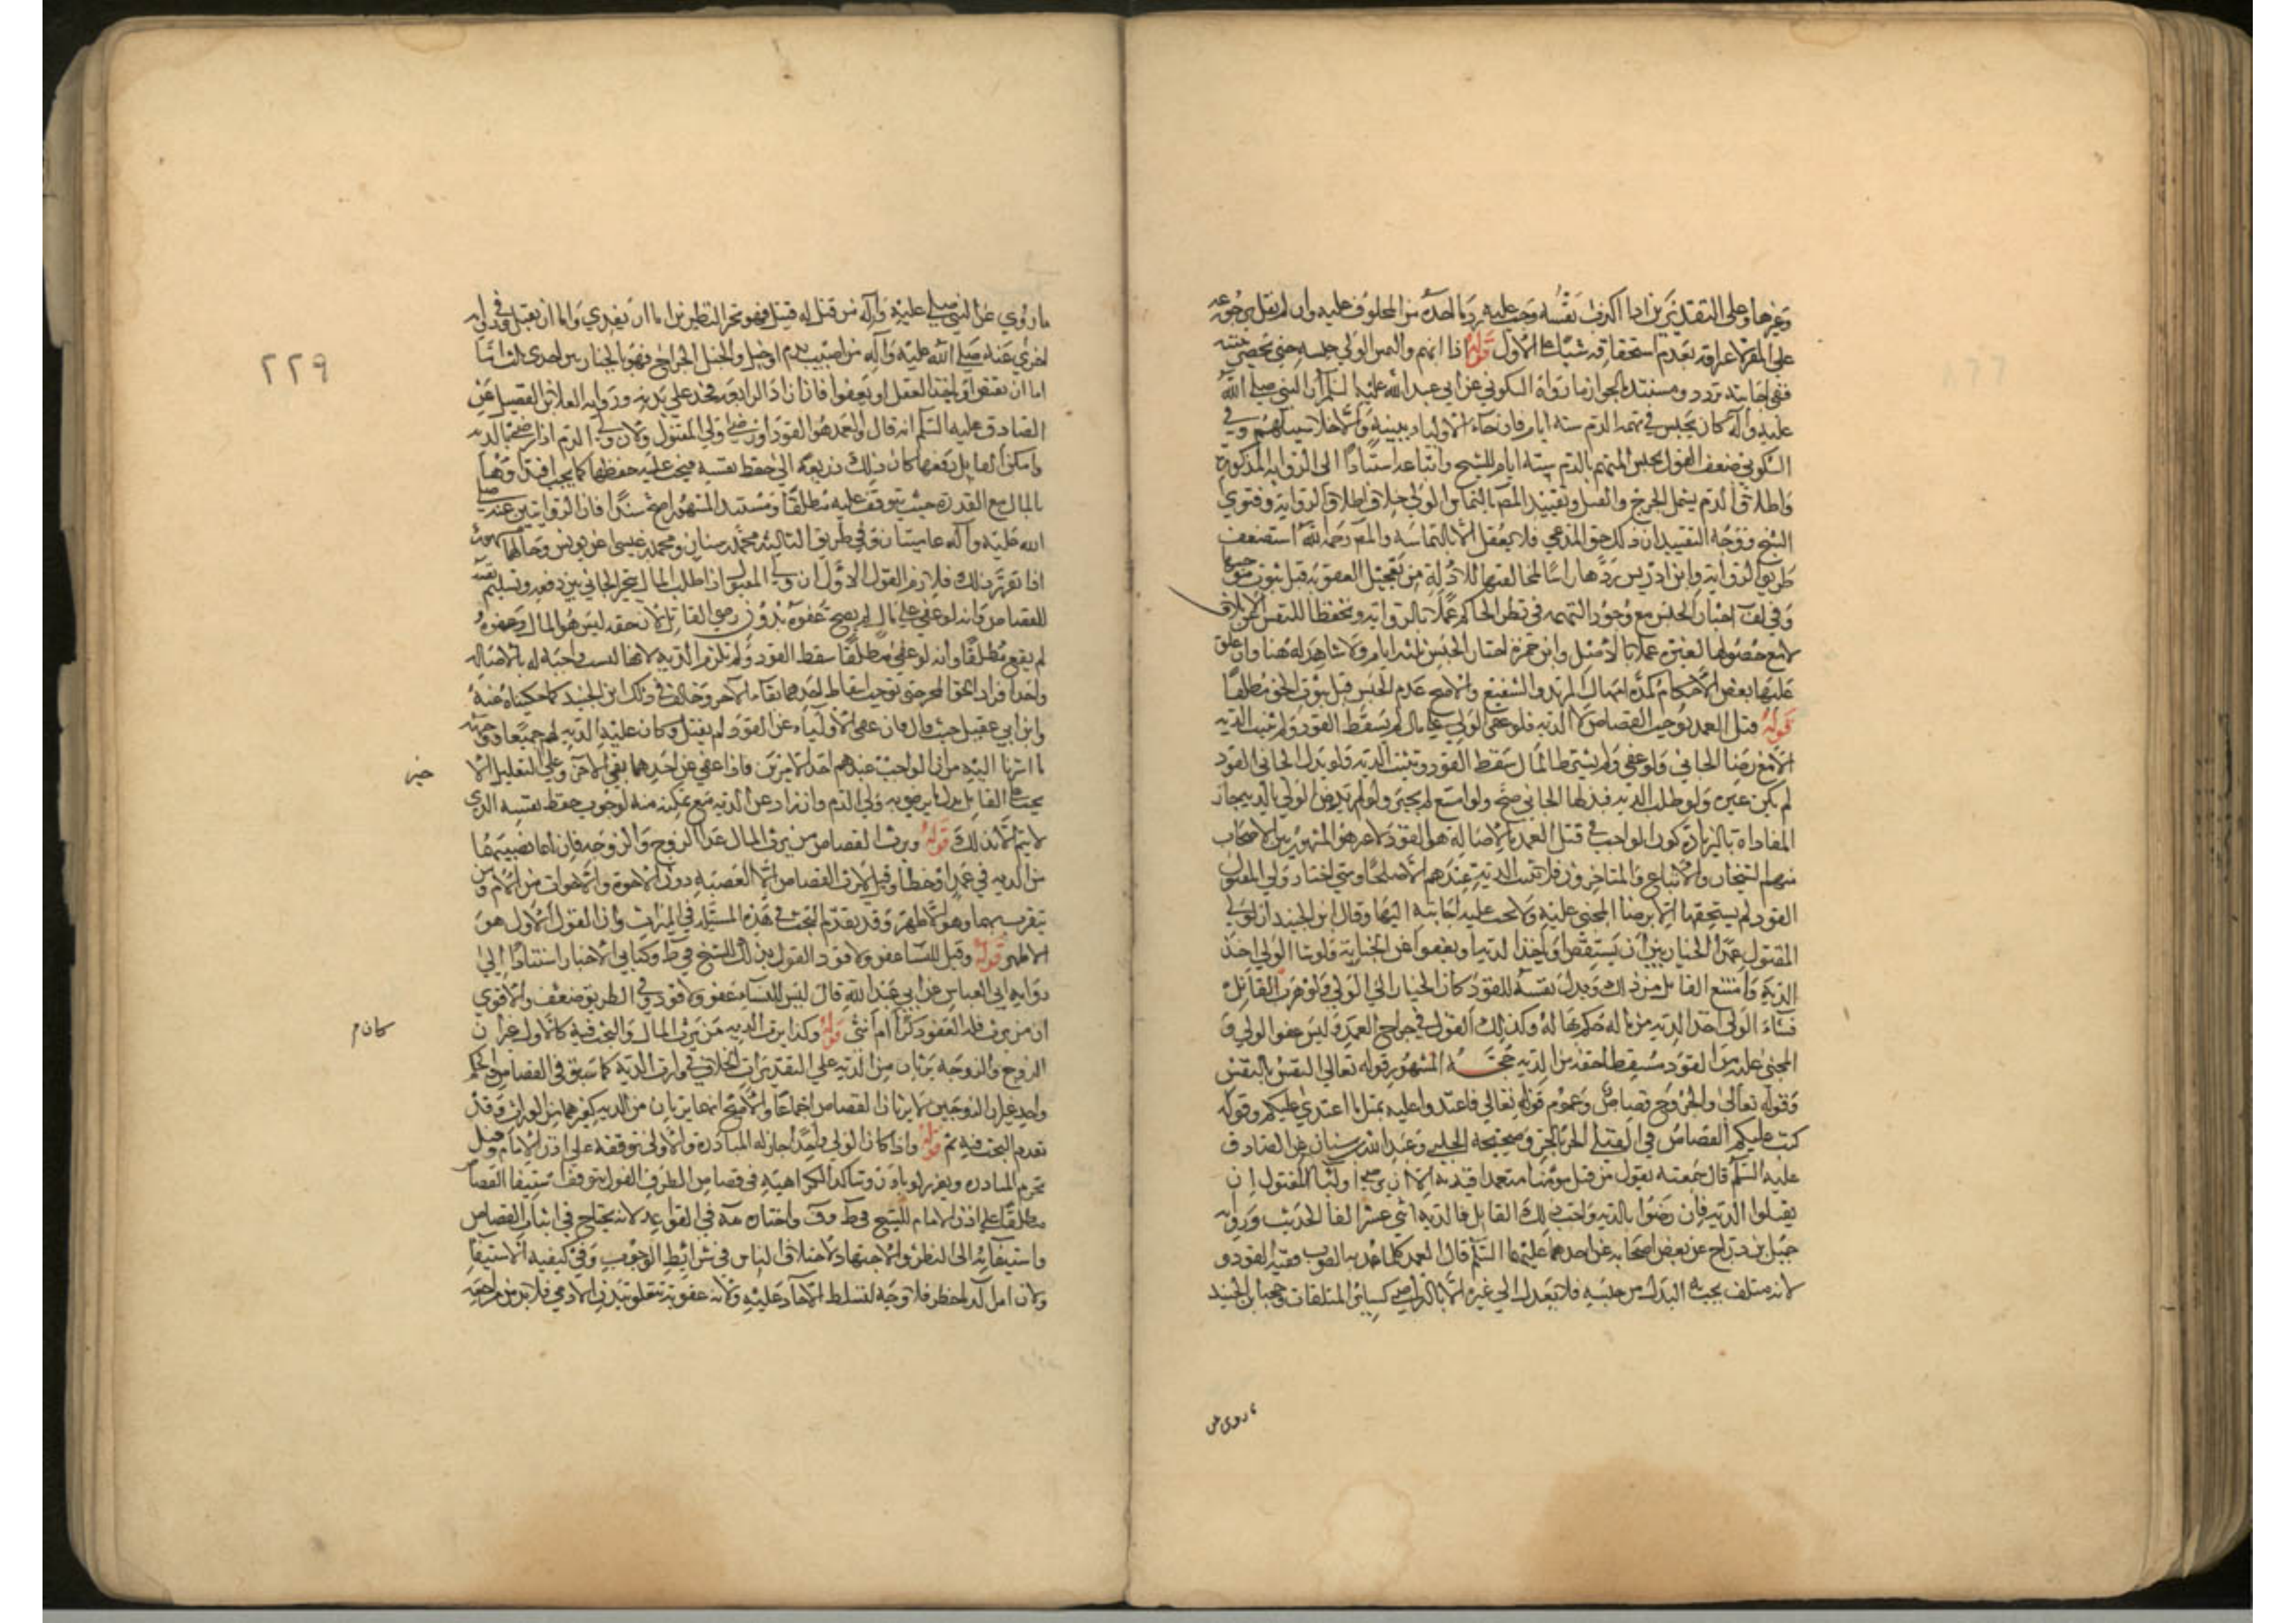 وغيرها وعلى التقديرين اذا اكذب نفسه وجب عليه رد ما اخذه من المحلوف عليه وان لم يقل برجوعه
على المقر لاعترافه بعدم استحقاقه شيئا على الاول قوله اذا اتهم والتمس الولي حبسه حتى تحضر بينته
ففي اجابته تردد ومستند الجواز ما رواه السكوني عن ابي عبد الله عليه السلم ان النبي صلى الله
عليه وآله كان يحبس في تهمة الدم ستة ايام فان جاء الاولياء ببينة والا خلا سبيلهم وفي
السكوني ضعف القول بحبس المتهم بالدم ستة ايام للشيخ واتباعه استنادا الى الرواية المذكورة
واطلاق الدم يشمل الجرح والقتل وتقييد المصـ بالتماس الولي خلاف اطلاق الرواية وفتوى
الشيخ ووجه التقييد ان ذلك حق المدعي فلا يفعل الا بالتماسه والمصـ رحمه الله استضعف
طريق الرواية وابن ادريس ردها راسا لمخالفتها للادلة من تعجيل العقوبة قبل ثبوت موجبها
وفي لف اختار الحبس مع وجود التهمة في نظر الحاكم عملا بالرواية وتحفظا للنفس عن الاتلاف
لا مع حصولها لغيره عملا بالاصل وابن حمزة اختار الحبس ثلثة ايام ولا شاهد له هنا وان علق
عليها بعض الاحكام كمدة امهال المرتد والشفيع والاصح عدم الحبس قبل ثبوت الحق مطلقا
قوله قتل العمد يوجب القصاص لا الدية فلو عفى الولي على مال لم يسقط القود ولم تثبت الدية
الا مع رضا الجاني ولو عفى ولم يشترط المال سقط القود وتثبت الدية ولو بذل الجاني القود
لم يكن غيره ولو طلب الدية فبذلها الجاني صح ولو امتنع لم يجبر ولو لم يرض الولي بالدية جاز
المفاداة بالزيادة كون الواجب في قتل العمد بالاصالة هو القود لا غير هو المشهور بين الاصحاب
منهم الشيخان والاتباع والمتاخرون فلا تثبت الدية عندهم الا صلحا ومتى اختار ولي المقتول
القود لم يستحقها الا برضا المجني عليه ولا يجب عليه اجابته اليها وقال ابن الجنيد ان لولي
المقتول عمدا الخيار بين ان يستقص او ياخذ الدية او يعفوا عن الجناية ولو شا الولي اخذ
الدية وامتنع القاتل من ذلك وبذل نفسه للقود كان الخيار الى الولي ولو هرب القاتل
فشاء الولي اخذ الدية من ماله حكم بها له وكذلك القول في جراح العمد وليس عفوا الولي و
المجني عليه من القود مسقطا حقه من الدية حجة المشهور قوله تعالى النفس بالنفس
وقوله تعالى والجروح قصاص وعموم قوله تعالى فاعتدوا عليه بمثل ما اعتدى عليكم وقوله
كتب عليكم القصاص في القتلى الحر بالحر وصحيحة الحلبي وعبد الله بن سنان عن الصادق
عليه السلم قال سمعته يقول من قتل مؤمنا متعمدا قيد به الا ان يرضى اولياء المقتول ان
يقبلوا الدية فان رضوا بالدية واحب ذلك القاتل فالدية اثني عشر الفا الحديث ورواية
جميل بن دراج عن بعض اصحابه عن احدهما عليهما السلم قال العمد كلما عمد به الضرب ففيه القود و
لانه متلف يجب له البدل من جنسه فلا يعدل الى غيره الا بالتراضي كسائر المتلفات وحجة ابن الجنيد
ما روي عن
٢٢٩
ما روي عن النبي صلى عليه وآله من قتل له قتيل فهو بخير النظرين اما ان يفدي واما ان يقتل وفي رواية
اخرى عنه صلى الله عليه وآله من اصيب بدم او خبل والخبل الجراح فهو بالخيار بين احدى ثلث اشيا
اما ان يقتص او ياخذ العقل او يعفوا فان اراد الرابعة فخذ على يديه ورواية العلا بن الفضيل عن
الصادق عليه السلم انه قال والعمد هو القود او رضى ولي المقتول ولان ولي الدم اذا رضي بالدية
وامكن القاتل دفعها كان ذلك ذريعة الى حفظ نفسه فيجب عليه حفظها كما يجب افتداؤها
بالمال مع القدرة حيث يتوقف عليه مطلقا ومستند المشهور اصح سندا فان الروايتين عنه صلى
الله عليه وآله عاميتان وفي طريق الثالثة محمد بن سنان ومحمد بن عيسى عن يونس وحالهما
اذا تقرر ذلك فلازم القول الاول ان ولي المقتول اذا طلب المال تخير الجاني بين دفعه وتسليم نفسه
للقصاص وانه لو عفى على مال لم يصح عفوه بدون رضى القاتل لان حقه ليس هو المال وعفوه
لم يقع مطلقا وانه لو عفى مطلقا سقط القود ولم تلزم الدية لانها ليست واجبة له بالاصالة
واحد افراد الحق المخير حتى يوجب اسقاط احدهما بقاء الآخر وخالف في ذلك ابن الجنيد كما حكيناه عنه
وابن ابي عقيل حيث قال فان عفى الاولياء عن القود لم يقتل وكان عليه الدية لهم جميعا ووجهه
ما اشرنا اليه من ان الواجب عندهم احد الامرين فاذا عفى عن احدهما بقي الآخر وعلى التعليل الا
خير
يجب على القاتل بذل ما يرضى به ولي الدم وان زاد عن الدية مع تمكنه منه لوجوب حفظ نفسه الذي
لا يتم الا بذلك قوله ويرث القصاص من يرث المال عدا الزوج والزوجة فان لهما نصيبهما
من الدية في عمد او خطأ وقيل لا يرث القصاص الا العصبة دون الاخوة والاخوات من الام ومن
يتقرب بهما وهو الاظهر وقد تقدم البحث في هذه المسئلة في الميراث وان القول الاول هو
الاظهر قوله وقيل ليس للنسا عفو ولا قود القول بذلك للشيخ في ط وكتابي الاخبار استنادا الى
رواية ابي العباس عن ابي عبد الله قال ليس للنساء عفو ولا قود وفي الطريق ضعف والاقوى
ان من يرث فله العفو ذكرا كان ام انثى قوله وكذا يرث الدية من يرث المال والبحث فيه كالاول غير ان
كان م
الزوج والزوجة يرثان من الدية على التقديرات الخلاف في وارث الدية كما سبق في القصاص والحكم
واحد غير ان الزوجين لا يرثان القصاص اجماعا والاصح انهما يرثان من الدية كغيرهما من الوراث وقد
تقدم البحث فيه ثم قوله واذا كان الولي واحدا جاز له المبادرة والاولى توقفه على اذن الامام وقيل
تحرم المبادرة ويعزر لو بادر وتتاكد الكراهية في قصاص الطرف القول بتوقف استيفا القصاص
مطلقا على اذن الامام للشيخ في ط وف واختاره مة في القواعد لانه يحتاج في اثبات القصاص
واستيفائه الى النظر والاجتهاد لاختلاف الناس في شرائط الوجوب وفي كيفية الاستيفا
ولان امر الدم خطر فلا وجه لتسلط الآحاد عليه ولانه عقوبة تتعلق ببدن الآدمي فلا بد من مراجعة